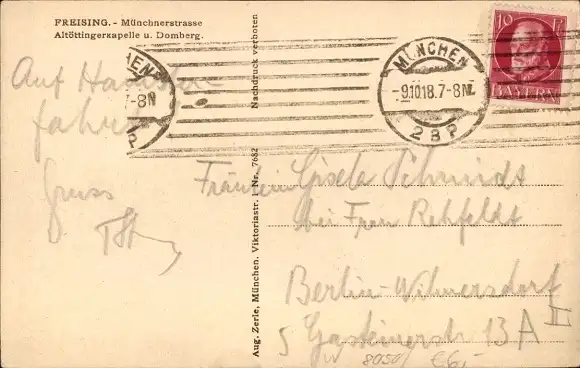 FREISING. - Münchnerstrasse
Altöttingerkapelle u. Domberg.
Nachdruck verboten
Aug. Zerle, München. Viktoriastr. 1. Nr. 7682
MÜNCHEN
-9.10.18.7-8N.
2BP
10 Pf
BAYERN
HEN
7-8N
P
Auf
Gruss
Fräulein Gisela Schmidt
bei Frau Rehfeldt
Berlin-Wilmersdorf
Gasteinerstr 13A II
8050 €6,-